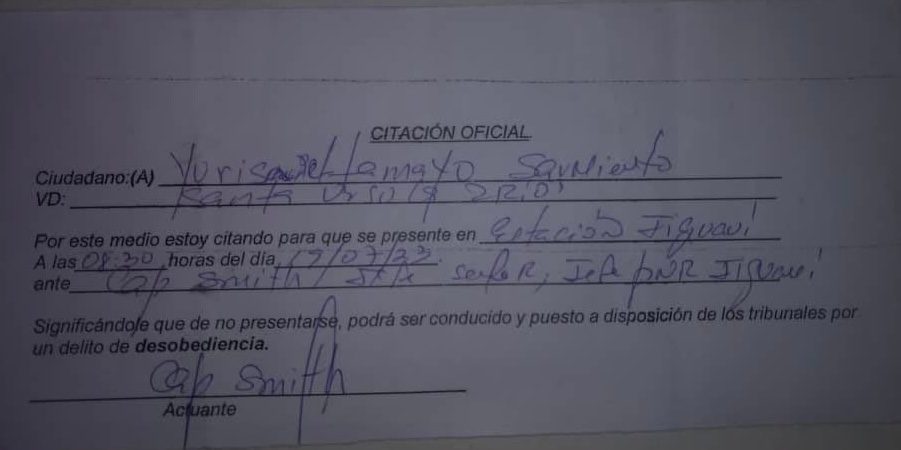 CITACIÓN OFICIAL
Ciudadano:(A) Yurisandel Tamayo Sarmiento
VD: Santa
Por este medio estoy citando para que se presente en Estación Jiguaní
A las 08:30 horas del día, /07/23.
ante Cap Smith / Jefe sector, Jefe PNR Jiguaní
Significándole que de no presentarse, podrá ser conducido y puesto a disposición de los tribunales por
un delito de desobediencia.
Cap Smith
Actuante